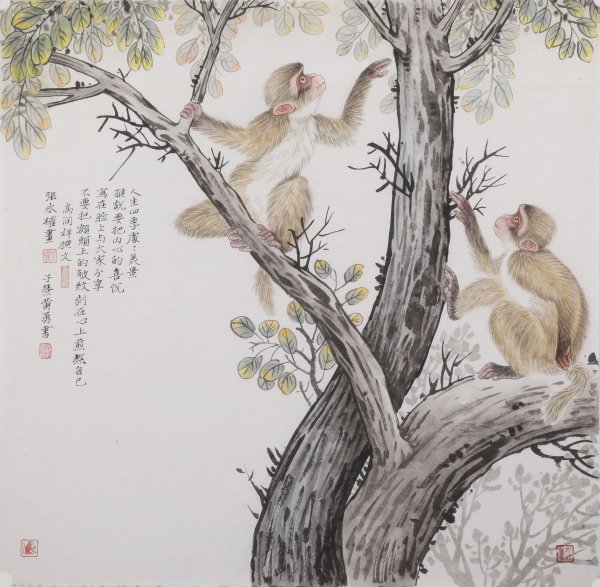 人生四季處々美景
猴説要把内心的喜悦
寫在臉上与大家分享
不要把額頭上的皺紋刻在心上煎熬自己
高润祥撰文
張永權畫
子慧黄勇書